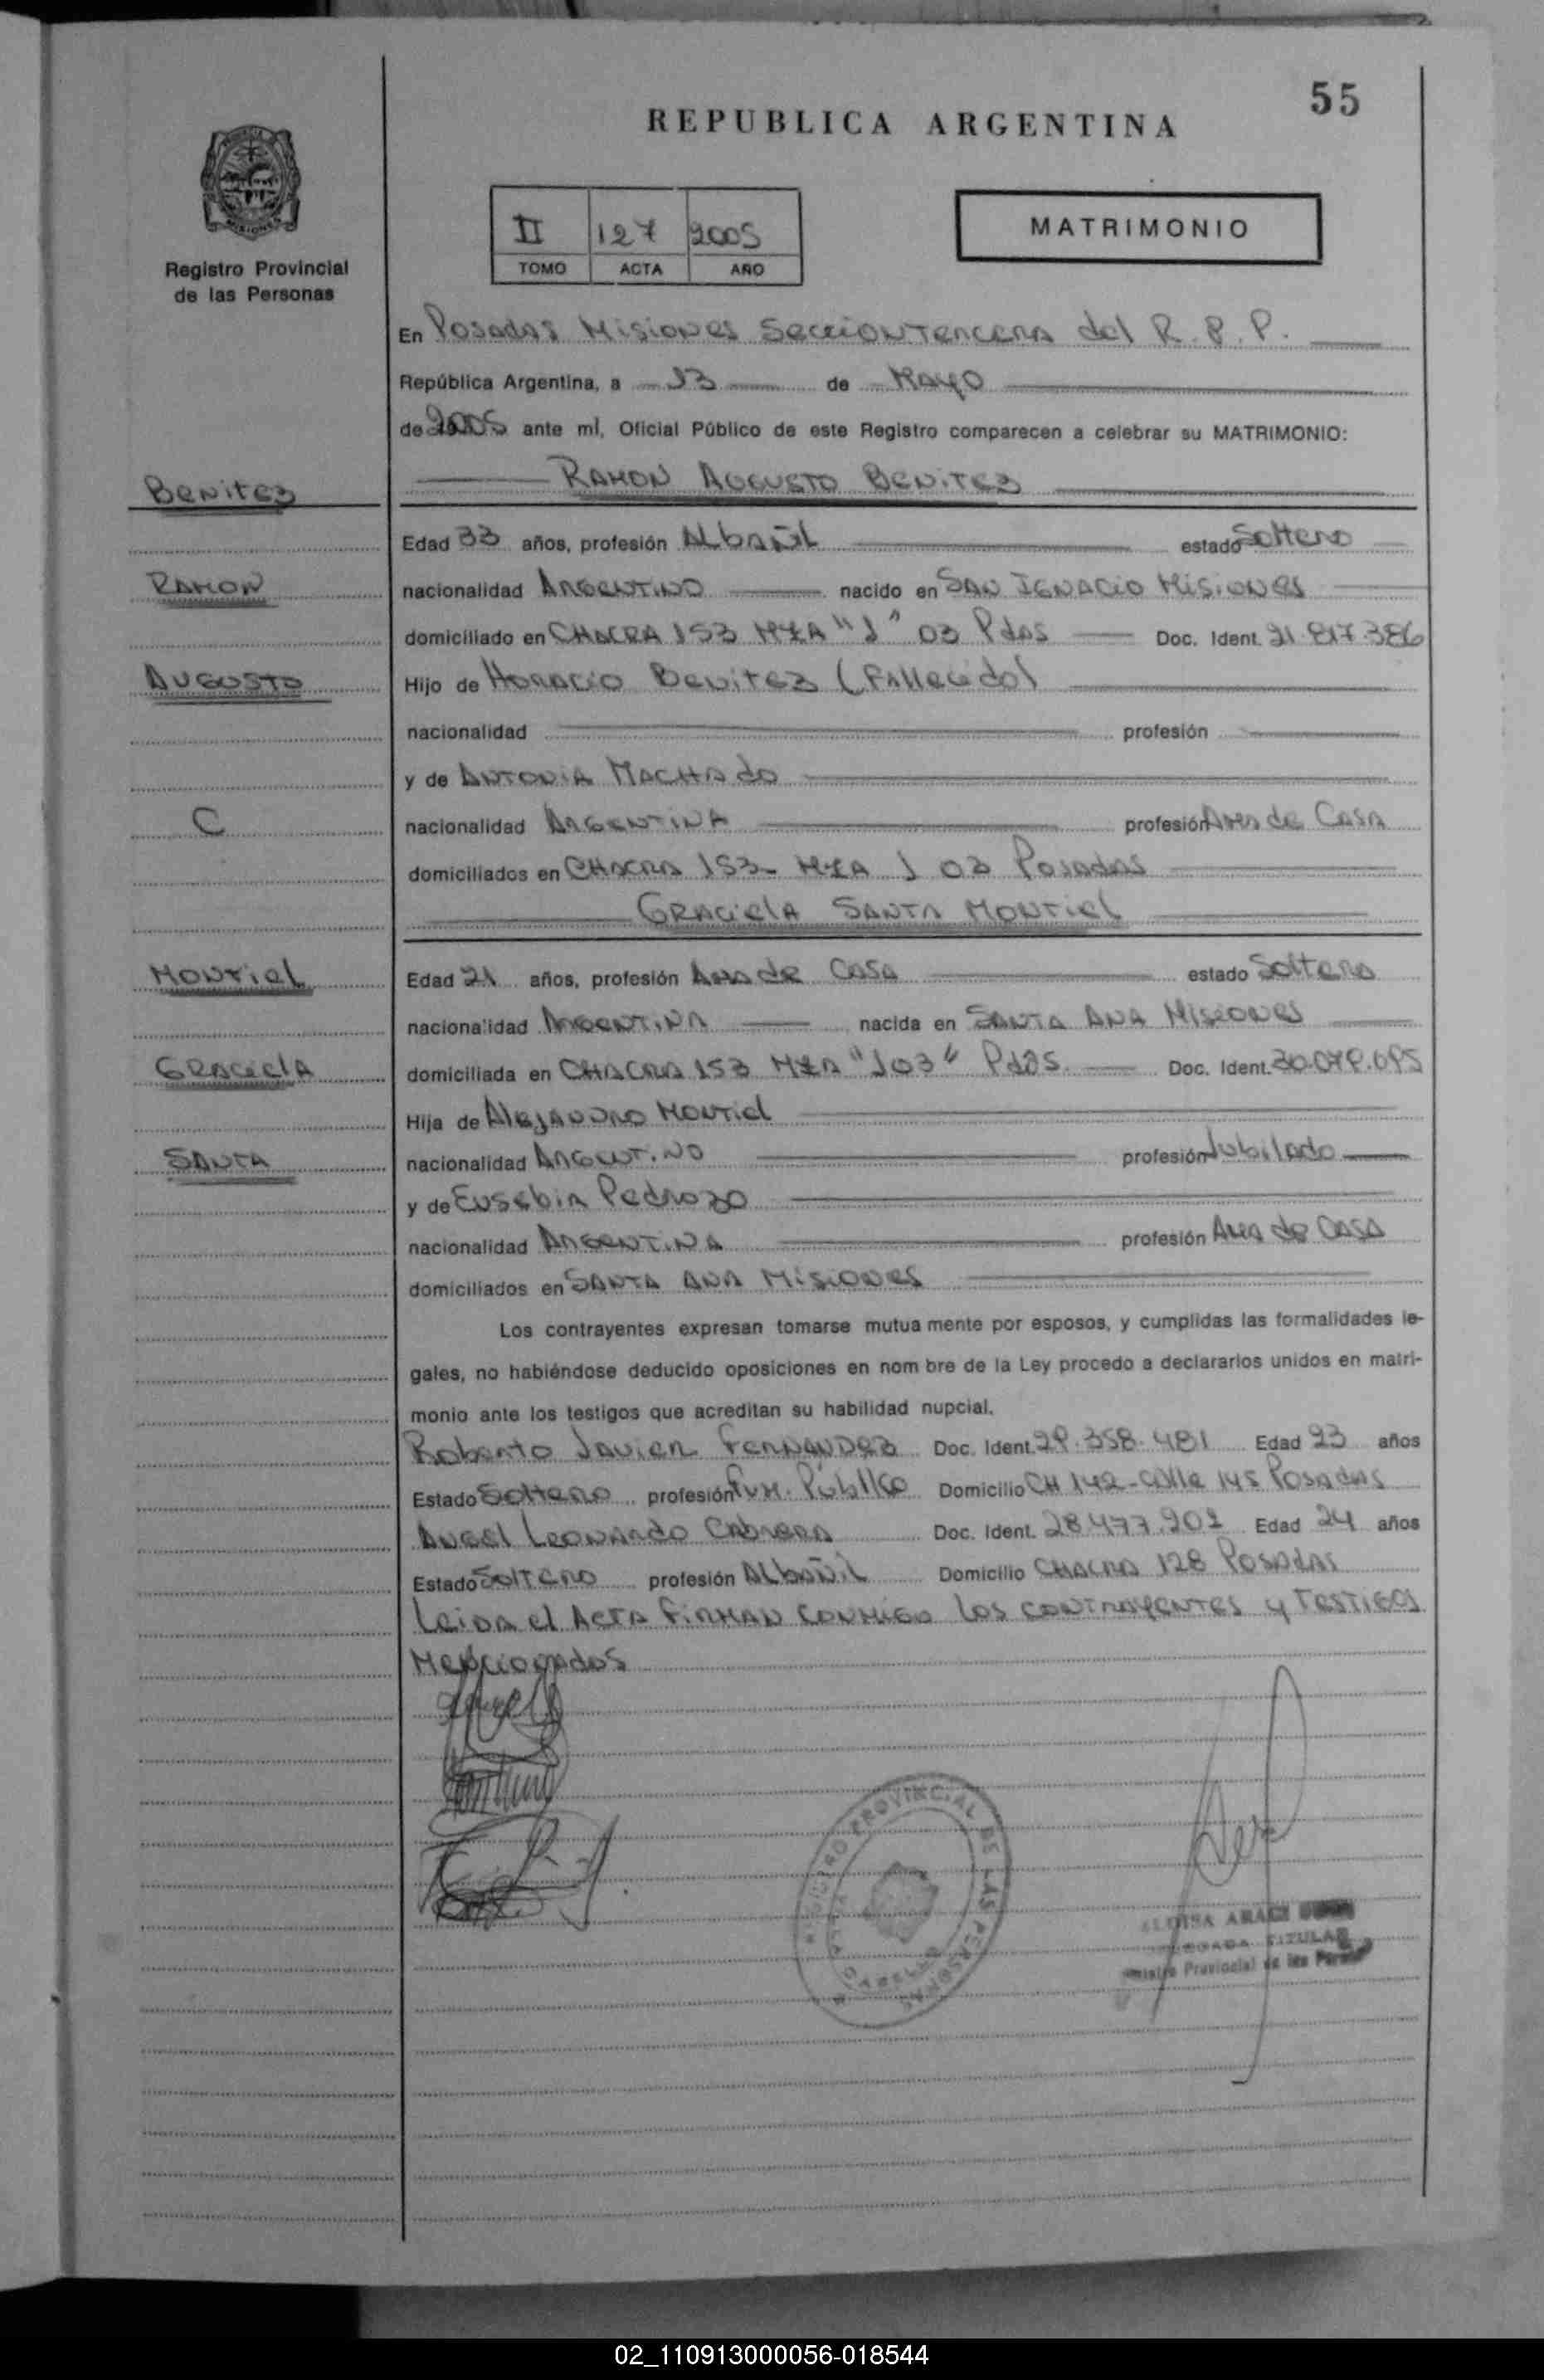 55
REPUBLICA ARGENTINA
MISIONES
Registro Provincial
de las Personas
II 127 2005
TOMO ACTA AÑO
MATRIMONIO
En Posadas Misiones Seccion Tercera del R. P. P.
República Argentina, a 13 de Mayo
de 2005 ante mí, Oficial Público de este Registro comparecen a celebrar su MATRIMONIO:
Benitez
Ramon Augusto Benitez
Edad 33 años, profesión Albañil estado Soltero
Ramon
nacionalidad Argentino nacido en San Ignacio Misiones
domiciliado en Chacra 153 Mza "J" 03 Pdas Doc. Ident. 21.817.386
Augusto
Hijo de Horacio Benitez (Fallecido)
nacionalidad profesión
y de Antonia Machado
C
nacionalidad Argentina profesión Ama de Casa
domiciliados en Chacra 153 - Mza J 03 Posadas
Graciela Santa Montiel
Montiel
Edad 21 años, profesión Ama de Casa estado Soltera
nacionalidad Argentina nacida en Santa Ana Misiones
Graciela
domiciliada en Chacra 153 Mza "J03" Pdas. Doc. Ident. 30.079.095
Hija de Alejandro Montiel
Santa
nacionalidad Argentino profesión Jubilado
y de Eusebia Pedrozo
nacionalidad Argentina profesión Ama de Casa
domiciliados en Santa Ana Misiones
Los contrayentes expresan tomarse mutua mente por esposos, y cumplidas las formalidades le-
gales, no habiéndose deducido oposiciones en nom bre de la Ley procedo a declararlos unidos en matri-
monio ante los testigos que acreditan su habilidad nupcial.
Roberto Javier Fernandez Doc. Ident. 29.358.481 Edad 23 años
Estado Soltero profesión Fun. Público Domicilio CH 142 - Calle 145 Posadas
Angel Leonardo Cabrera Doc. Ident. 28.477.902 Edad 24 años
Estado Soltero profesión Albañil Domicilio Chacra 128 Posadas
Leida el Acta firman conmigo los contrayentes y testigos
Mencionados
REGISTRO PROVINCIAL DE LAS PERSONAS
TITULAR
Provincial de las
02_110913000056-018544